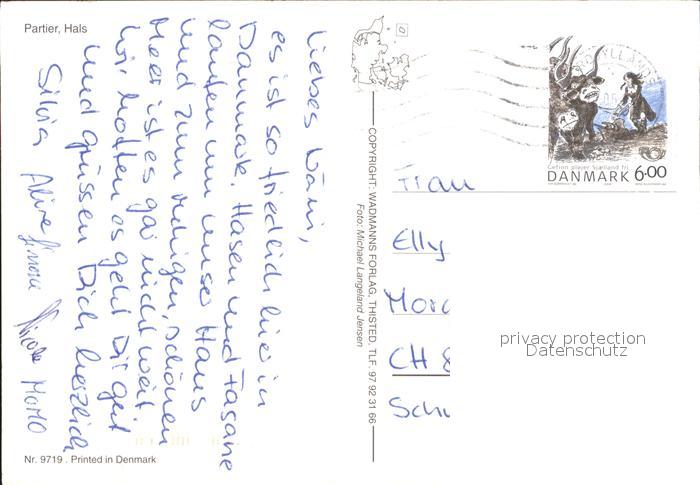 Partier, Hals
Liebes Väni,
es ist so friedlich hier in
Dänmark. Hasen und Fasane
laufen um unser Haus
und zum ruhigen, schönen
Meer ist es gar nicht weit.
Wir hoffen es geht Dir gut
und grüssen Dich herzlich
Silvia Aline Simone Nicole MOMO
Nr. 9719 . Printed in Denmark
COPYRIGHT: WADMANNS FORLAG, THISTED, TLF. 97 92 31 66
Foto: Michael Langeland Jensen
Gefion pløjer Sjælland fri
DANMARK 6.00
Frau
Elly
CH 8
privacy protection
Datenschutz